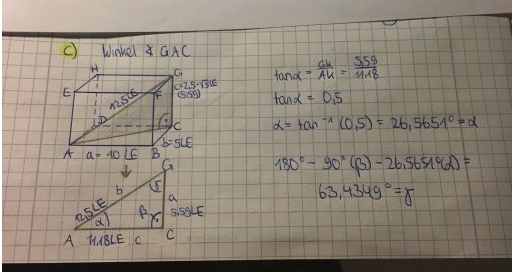 c) Winkel ∢ GAC
H
G
E
F
c=2,5·√5LE
(5,59)
12,5LE
D
C
b=5LE
A a=10 LE B
G
b
γ
a
12,5LE
β
5,59LE
α
A 11,18LE c C
tanα = GK/AK = 5,59/11,18
tanα = 0,5
α = tan⁻¹ (0,5) = 26,5651° = α
180° - 90° (β) - 26,5651°(α) =
63,4349° = γ